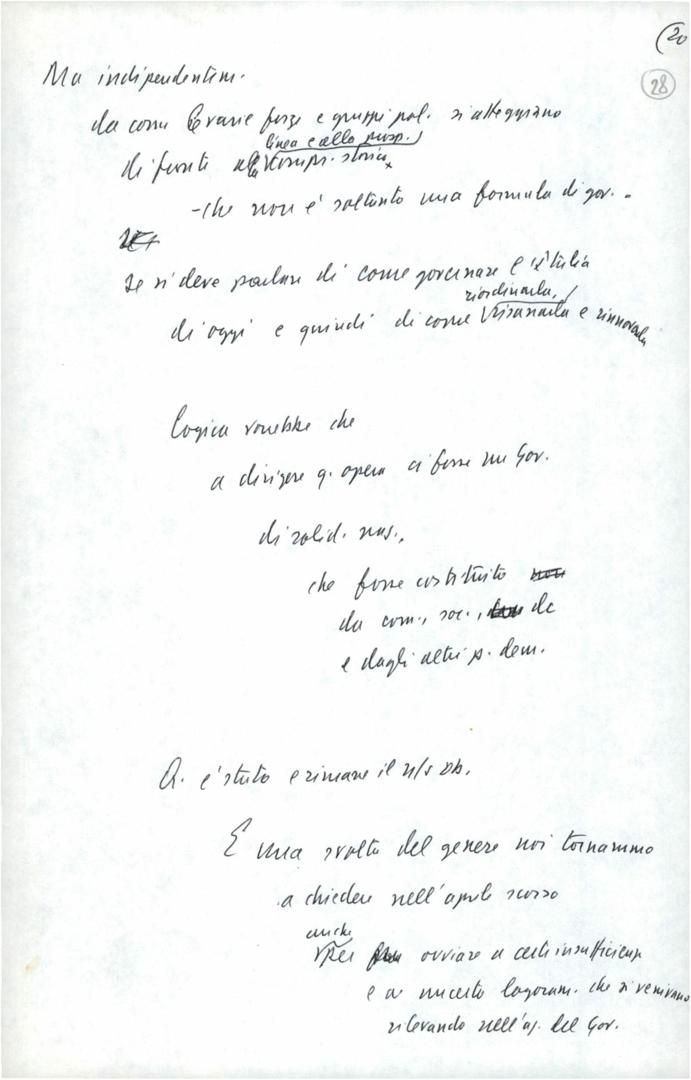 (20
28
Ma indipendentem.
da come le varie forze e gruppi pol. si atteggiano
linea e alla prosp.
di fronte alla compr. storico
- che non è soltanto una formula di gov. -
se si deve parlare di come governare l'Italia
riordinarla,
di oggi e quindi di come risanarla e rinnovarla
Logica vorrebbe che
a dirigere q. opera ci fosse un Gov.
di solid. naz.,
che fosse costituito
da com., soc., dc
e dagli altri p. dem.
Q. è stato e rimane il n/s ob.
E una svolta del genere noi tornammo
a chiedere nell'aprile scorso
anche
per ovviare a certe insufficienze
e a un certo logoram. che si venivano
rilevando nell'az. del Gov.